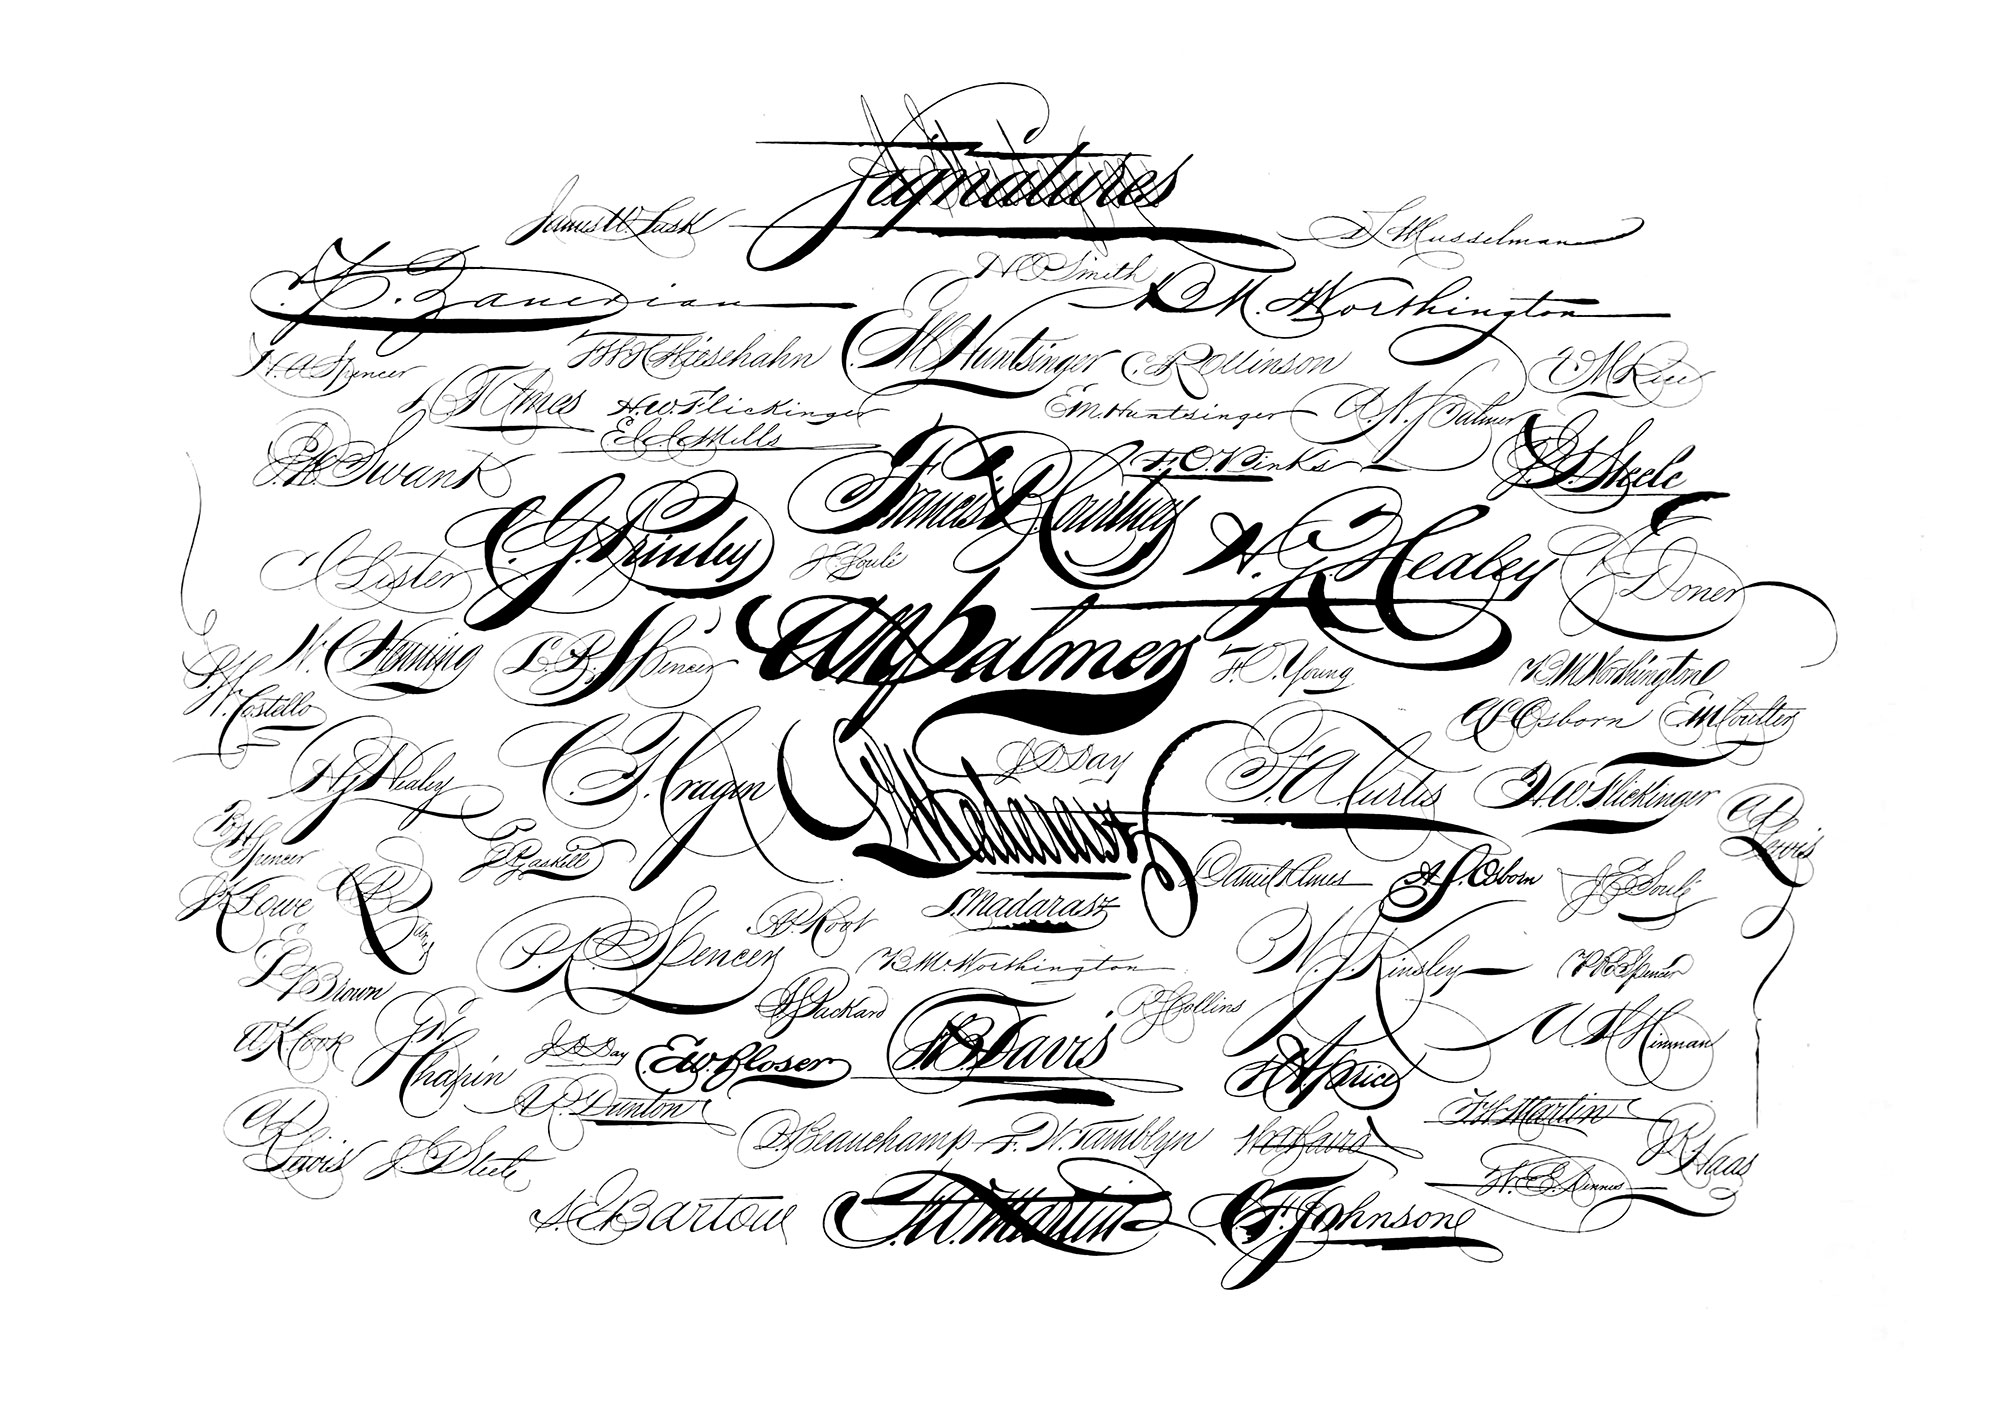 Signatures
James W. Lusk
D. L. Musselman
H. C. Smith
Zanerian
B. M. Worthington
H. A. Spencer
E. M. Huntsinger
C. Rollinson
D. T. Ames
H. W. Flickinger
E. M. Huntsinger
A. N. Palmer
E. C. Mills
P. H. Swank
Francis B. Courtney
H. O. Binks
Steele
C. Lister
J. C. Soulé
H. G. Healey
Doner
W. C. Henning
L. P. Spencer
A N Palmer
F. O. Young
B. M. Worthington
W. Costello
A. S. Osborn
E. M. Coulter
H. G. Healey
C. F. Cragin
J. D. Day
L. Madarasz
F. A. Curtis
H. W. Flickinger
A. P. Lewis
R. H. Spencer
G. A. Gaskell
Daniel T. Ames
A. S. Osborn
J. C. Soulé
Lowe
L. Madarasz
P. R. Spencer
A. P. Root
B. M. Worthington
W. J. Kinsley
P. R. Spencer
Brown
S. S. Packard
Collins
W. H. Cook
Chapin
J. D. Day
E. W. Bloser
Davis
A. H. Hinman
Price
A. R. Dunton
F. W. Martin
D. Beauchamp
F. W. Tamblyn
A. P. Lewis
Haas
W. E. Dennis
S. E. Bartow
F. W. Martin
C. F. Johnson